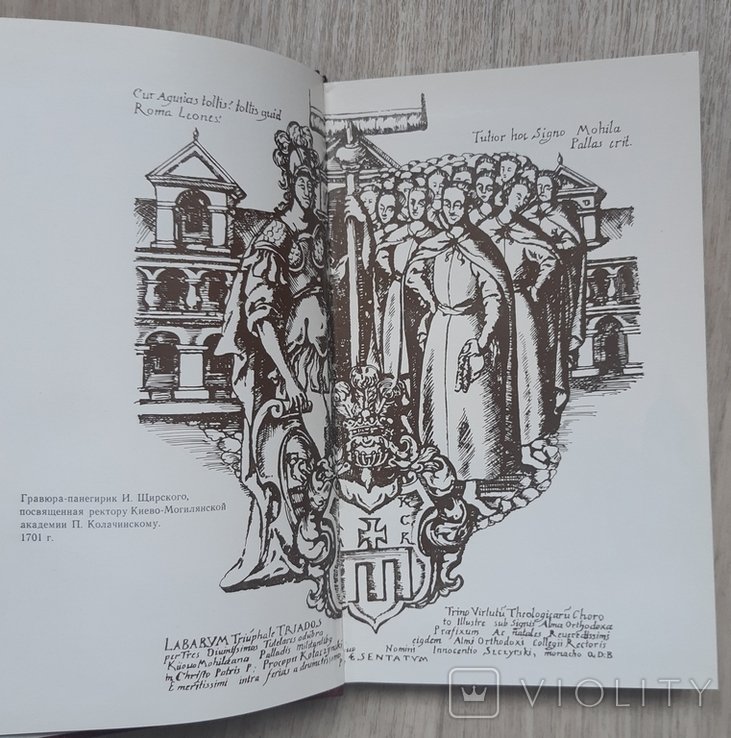 Cur Aquilas tollis? tollis quid
Roma Leones?
Tutior hoc Signo Mohila
Pallas erit.
Гравюра-панегирик И. Щирского,
посвященная ректору Киево-Могилянской
академии П. Колачинскому.
1701 г.
K
C R
LABARUM Triuphale TRIADOS
per Tres
Kiiovo Mohilæana Palladis
in Christo Patris P: Procopii
meritissimi intra ferias a
Trino Virtutũ Theologicarũ Choro
to Illustre sub Signis Alma Orthodoxa
Præfixum Ac Natales Reverendissimi
eiqdem Almi Orthodoxi Collegii Rectoris
Nomini Innocentio Szczyrski, monacho O.D.B
SENTATUM
VIOLITY